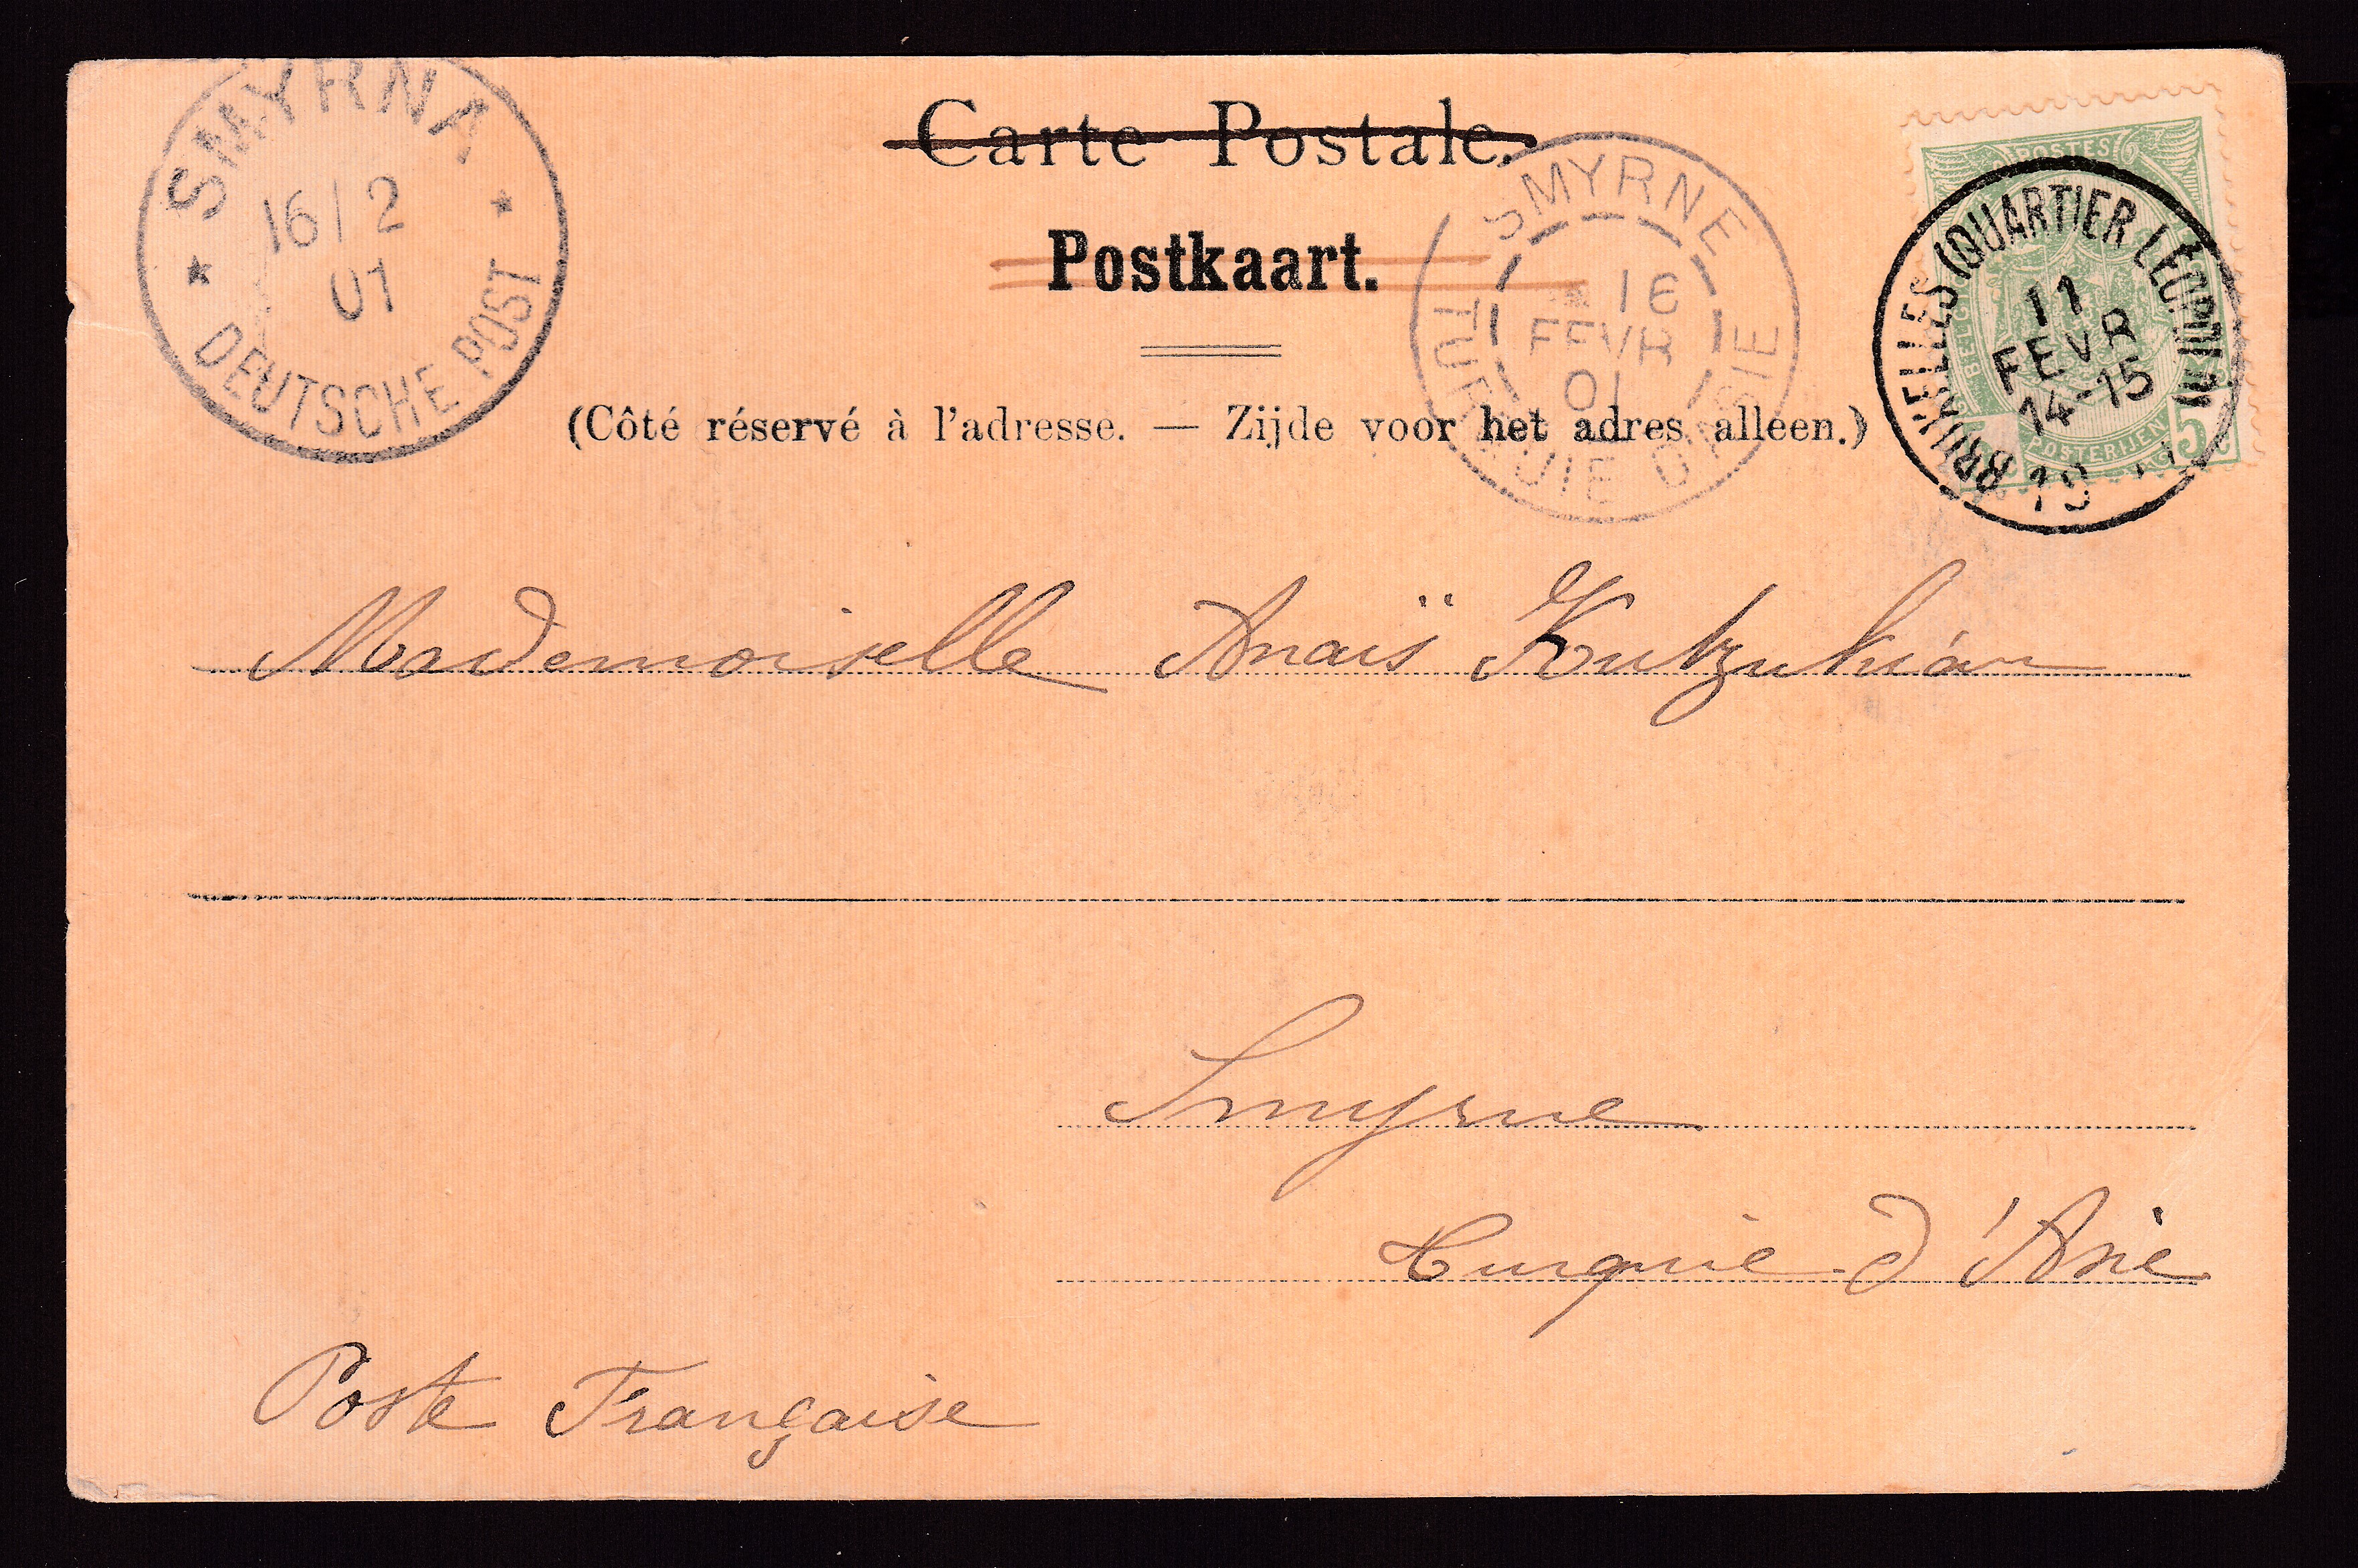 Carte Postale.
Postkaart.
(Côté réservé à l'adresse. — Zijde voor het adres alleen.)
SMYRNA
16/2
01
* DEUTSCHE POST *
SMYRNE
16
FEVR
01
TURQUIE D'ASIE
POSTES
POSTERIJEN
5
BRUXELLES (QUARTIER LEOPOLD)
11
FEVR
14-15
19
Mademoiselle Anaïs Kutzukián
Smyrne
Turquie d'Asie
Poste Française